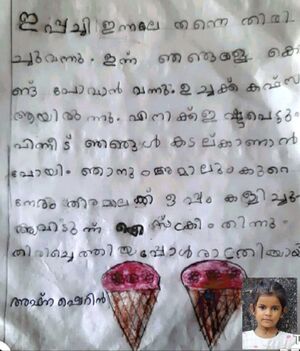 ഇപ്പച്ചി ഇന്നലേ തന്നെ തിരി
ച്ചുവന്നു. ഇന്ന് ഞങ്ങളേ കൊ
ണ്ട് പോവാൻ വന്നു. ഉച്ചക്ക്
ആയിരുന്നു. എനിക്ക് ഇഷ്ടപെട്ടു.
പിന്നീട് ഞങ്ങൾ കടല്കാണാൻ
പോയി. ഞാനും അമാലും കുറെ
നേരം തിരമാലക്ക് ഒപ്പം കളിച്ചു.
അവിടുന്ന് ഐസ്ക്രീം തിന്നു.
തിരിച്ചെത്തിയപ്പോൾ രാത്രിയായി
അഫ്ന ഷെറിൻ